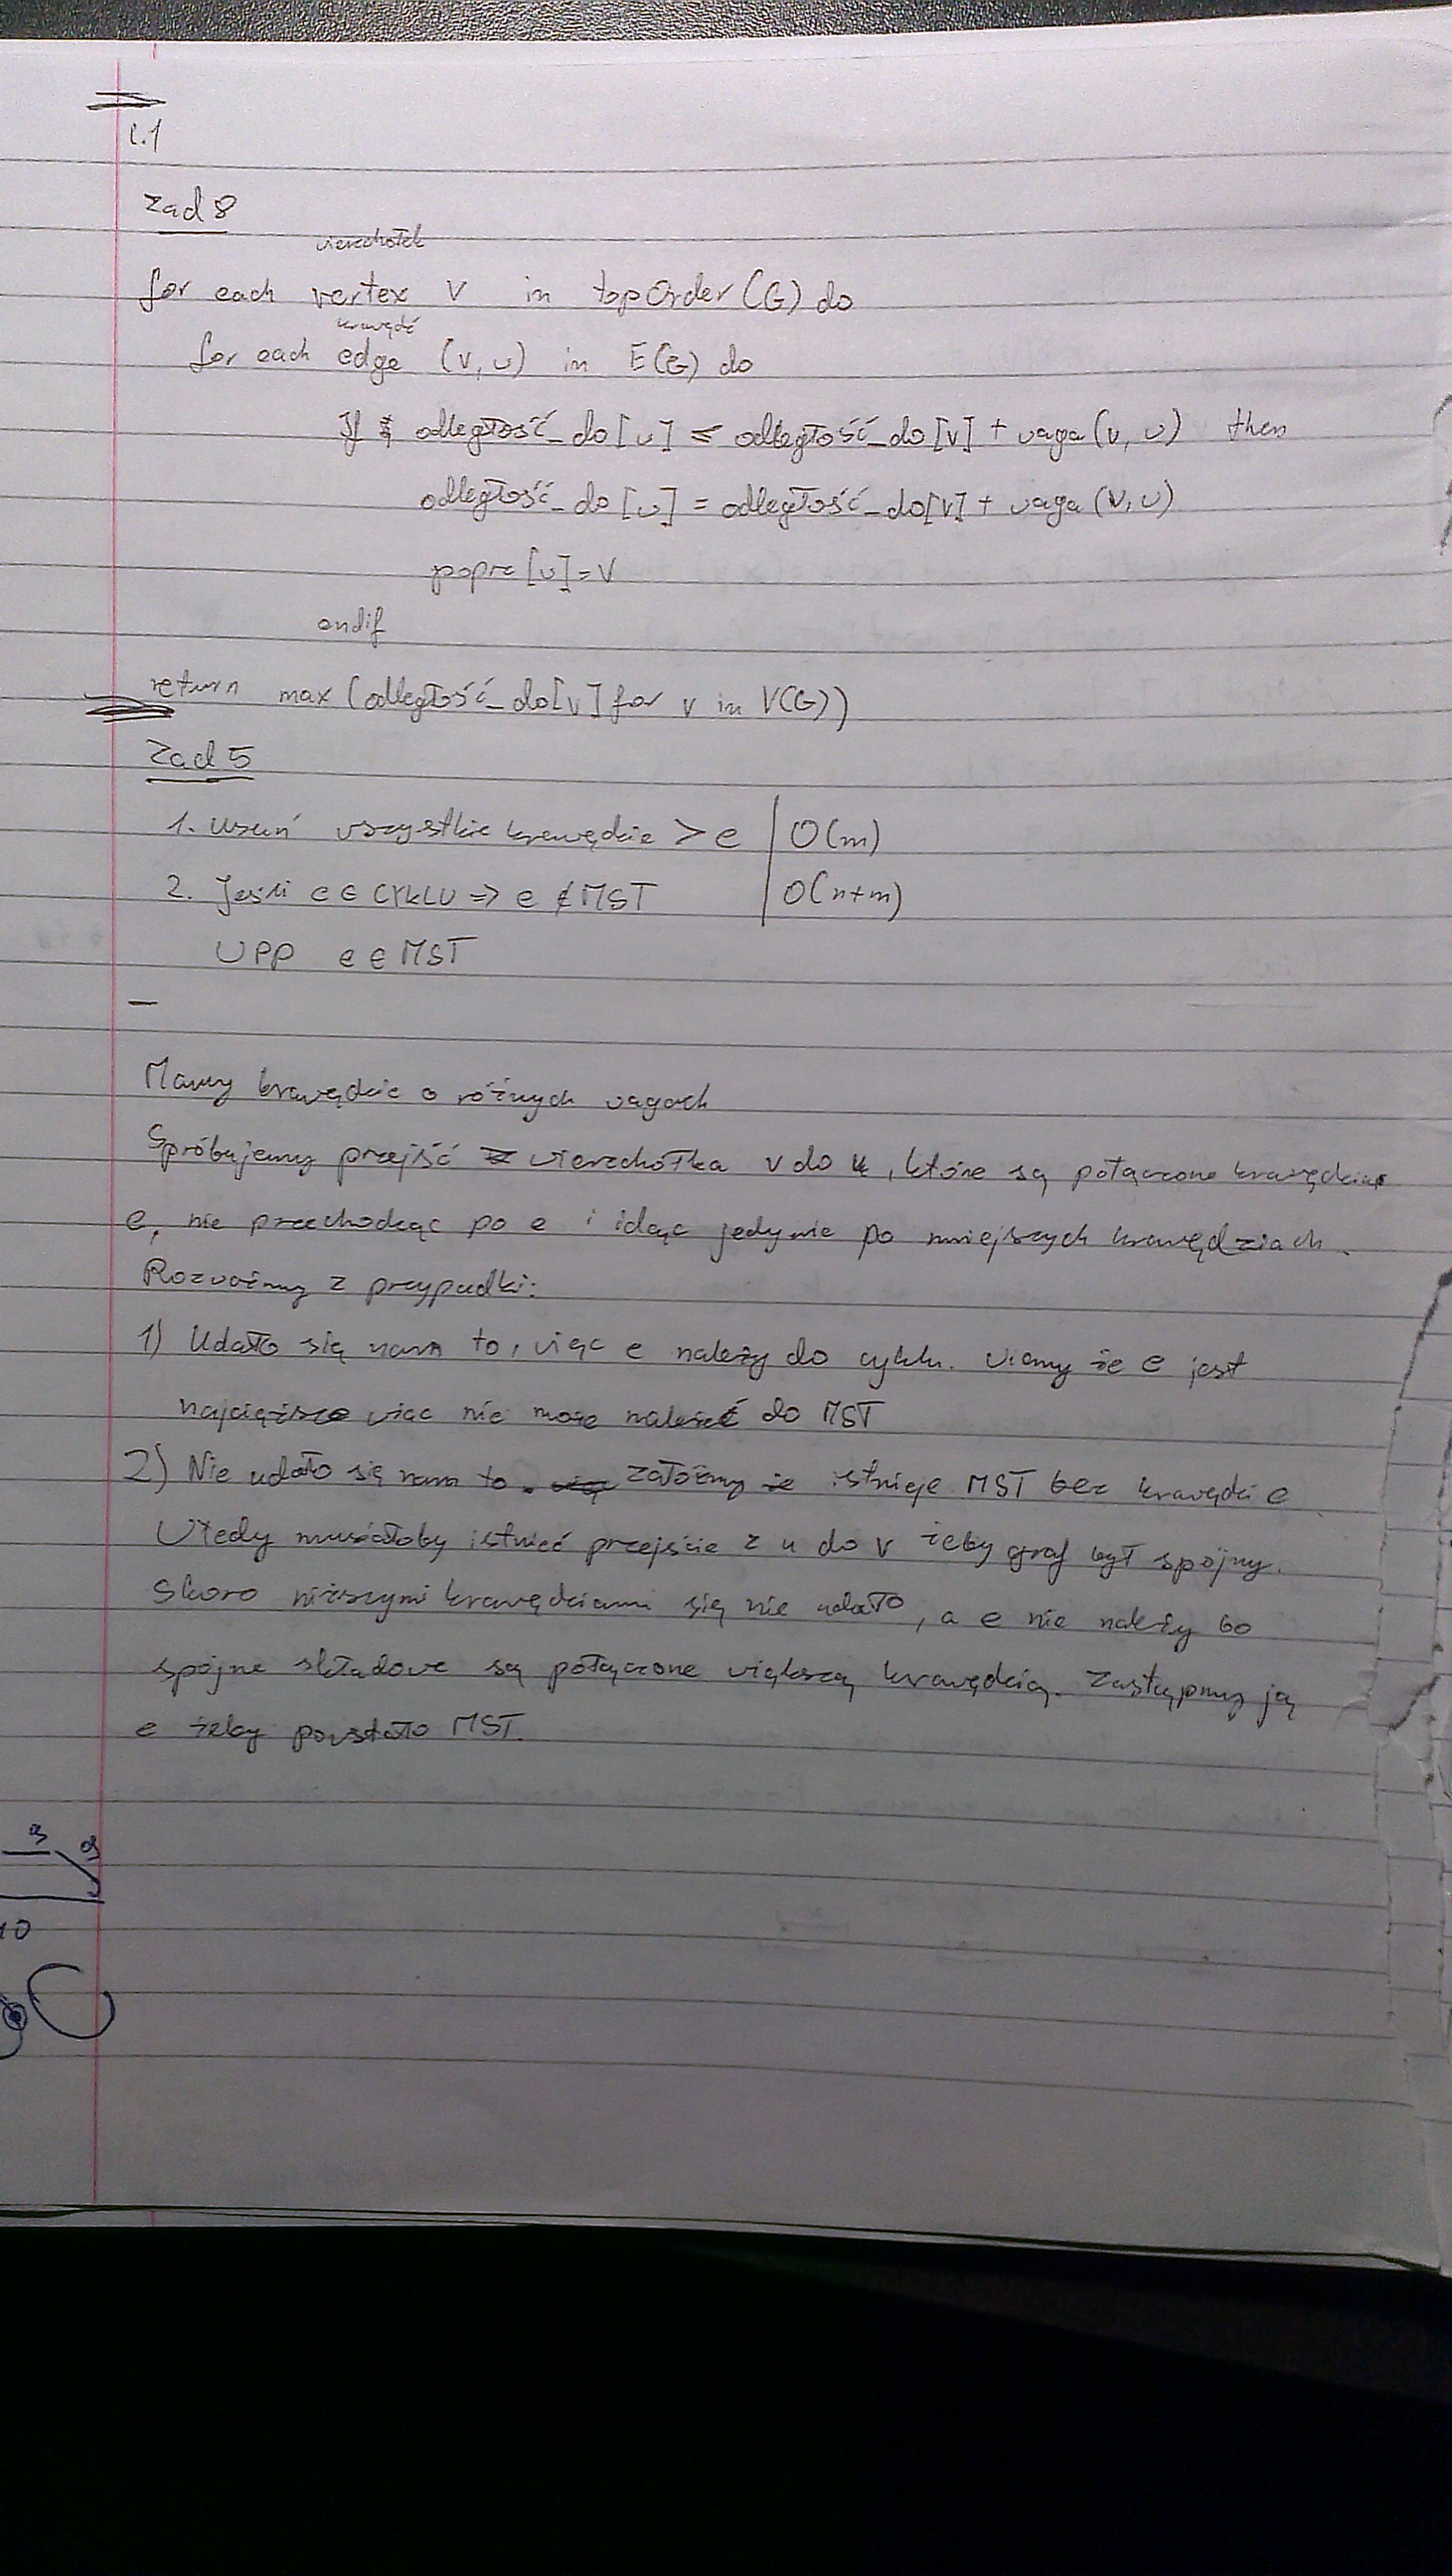 L.1
Zad 8
wierzchołek
for each vertex v in topOrder(G) do
krawędź
for each edge (v, u) in E(G) do
If odległość_do[u] ≤ odległość_do[v] + waga(v, u) then
odległość_do[u] = odległość_do[v] + waga(v, u)
poprz[u] = v
endif
return max(odległość_do[v] for v in V(G))
Zad 5
1. Usuń wszystkie krawędzie > e | O(m)
2. Jeśli e ∈ CYKLU => e ∉ MST | O(n+m)
WPP e ∈ MST
—
Mamy krawędzie o różnych wagach
Spróbujemy przejść z wierzchołka v do u, które są połączone krawędzią
e, nie przechodząc po e i idąc jedynie po mniejszych krawędziach.
Rozważmy 2 przypadki:
1) Udało się nam to, więc e należy do cyklu. Wiemy że e jest
najcięższe więc nie może należeć do MST
2) Nie udało się nam to. Załóżmy że istnieje MST bez krawędzi e
Wtedy musiałoby istnieć przejście z u do v żeby graf był spójny.
Skoro niższymi krawędziami się nie udało, a e nie należy to
spójne składowe są połączone większą krawędzią. Zastąpmy ją
e żeby powstało MST.
3
19
10